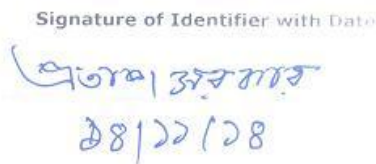 Signature of Identifier with Date
প্রতাপ সরকার
১৪/১১/১৪